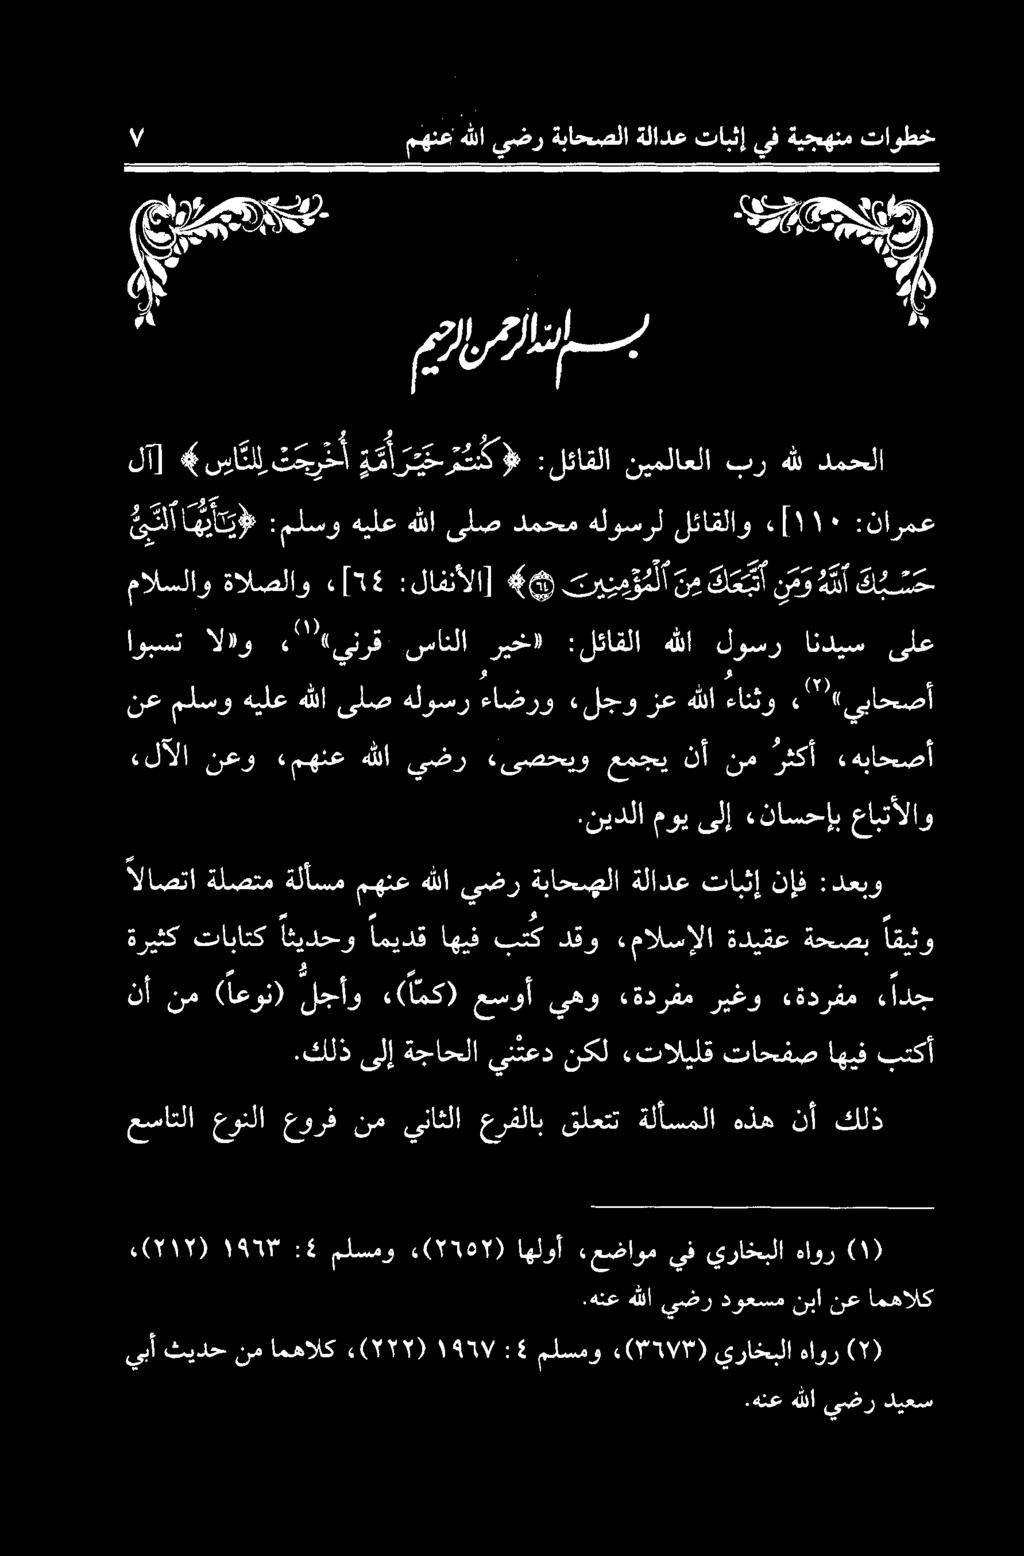 خطوات منهجية في إثبات عدالة الصحابة رضي الله عنهم ٧
بسم الله الرحمن الرحيم
الحمد لله رب العالمين القائل: ﴿كُنتُمْ خَيْرَ أُمَّةٍ أُخْرِجَتْ لِلنَّاسِ﴾ [آل
عمران: ١١٠]، والقائل لرسوله محمد صلى الله عليه وسلم: ﴿يَٰٓأَيُّهَا ٱلنَّبِيُّ
حَسْبُكَ ٱللَّهُ وَمَنِ ٱتَّبَعَكَ مِنَ ٱلْمُؤْمِنِينَ ٦٤﴾ [الأنفال: ٦٤]، والصلاة والسلام
على سيدنا رسول الله القائل: «خير الناس قرني»(١)، و«لا تسبوا
أصحابي»(٢)، وثناءُ الله عز وجل، ورضاءُ رسوله صلى الله عليه وسلم عن
أصحابه، أكثرُ من أن يجمع ويحصى، رضي الله عنهم، وعن الآل،
والأتباع بإحسان، إلى يوم الدين.
وبعد: فإن إثبات عدالة الصحابة رضي الله عنهم مسألة متصلة اتصالاً
وثيقاً بصحة عقيدة الإسلام، وقد كُتب فيها قديماً وحديثاً كتابات كثيرة
جداً، مفردة، وغير مفردة، وهي أوسع (كمّاً)، وأجلُّ (نوعاً) من أن
أكتب فيها صفحات قليلات، لكن دعتْني الحاجة إلى ذلك.
ذلك أن هذه المسألة تتعلق بالفرع الثاني من فروع النوع التاسع
(١) رواه البخاري في مواضع، أولها (٢٦٥٢)، ومسلم ٤: ١٩٦٣ (٢١٢)،
كلاهما عن ابن مسعود رضي الله عنه.
(٢) رواه البخاري (٣٦٧٣)، ومسلم ٤: ١٩٦٧ (٢٢٢)، كلاهما من حديث أبي
سعيد رضي الله عنه.